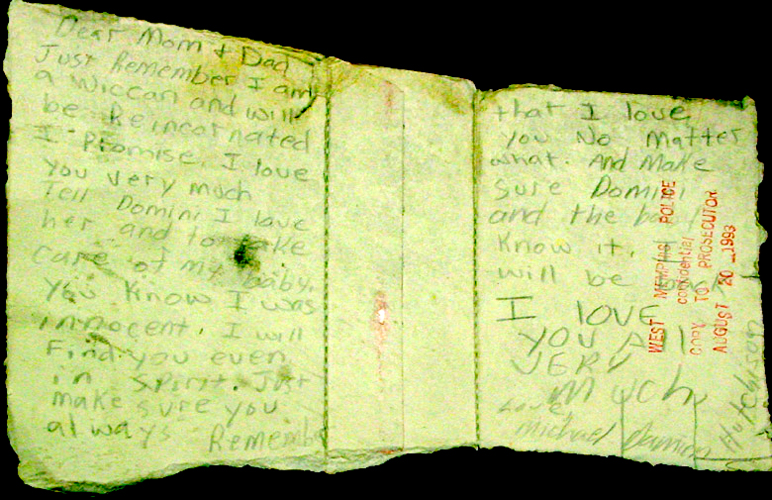 Dear Mom + Dad
Just Remember I am
a Wiccan and will
be Reincarnated
I Promise. I love
you very much
Tell Domini I love
her and to take
care of my baby.
you know I was
innocent. I will
Find you even
in Spirit. Just
make sure you
always Rememb
that I love
you No Matter
what. And Make
sure Domini
and the baby
Know it. I
will be back
I love
you All
VERY
Much
Love
Michael Damien Hutchison
WEST MEMPHIS POLICE
confidential
COPY TO PROSECUTOR
AUGUST 20 1993